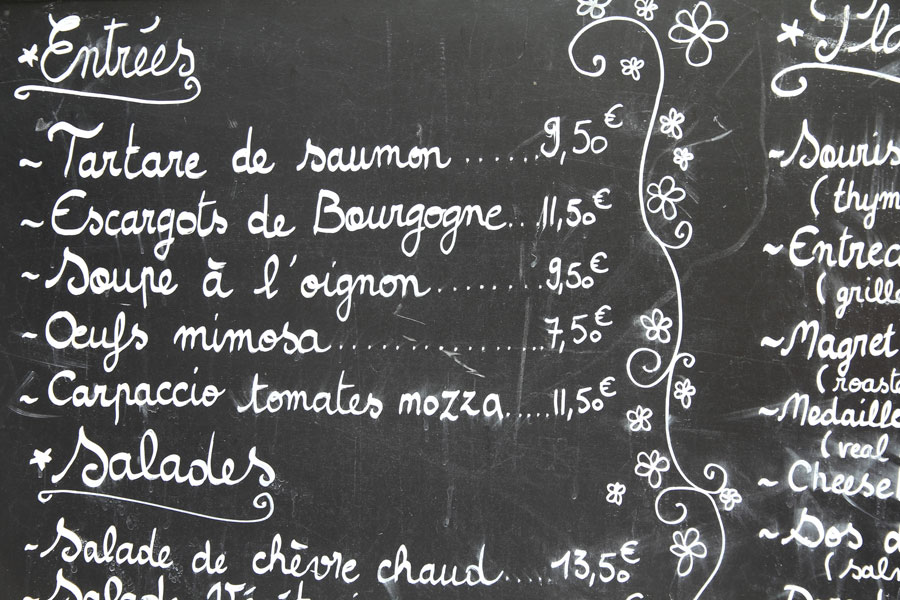 Entrées
~ Tartare de saumon ...... 9,50€
~ Escargots de Bourgogne... 11,50€
~ Soupe à l'oignon ........ 9,50€
~ Œufs mimosa .............. 7,50€
~ Carpaccio tomates mozza..... 11,50€
Salades
~ Salade de chèvre chaud..... 13,50€
Salade
Pla
~ Souris
(thym
~ Entrec
(grille
~ Magret
(roaste
~ Medaille
(veal
~ Cheese
~ Dos d
(sal